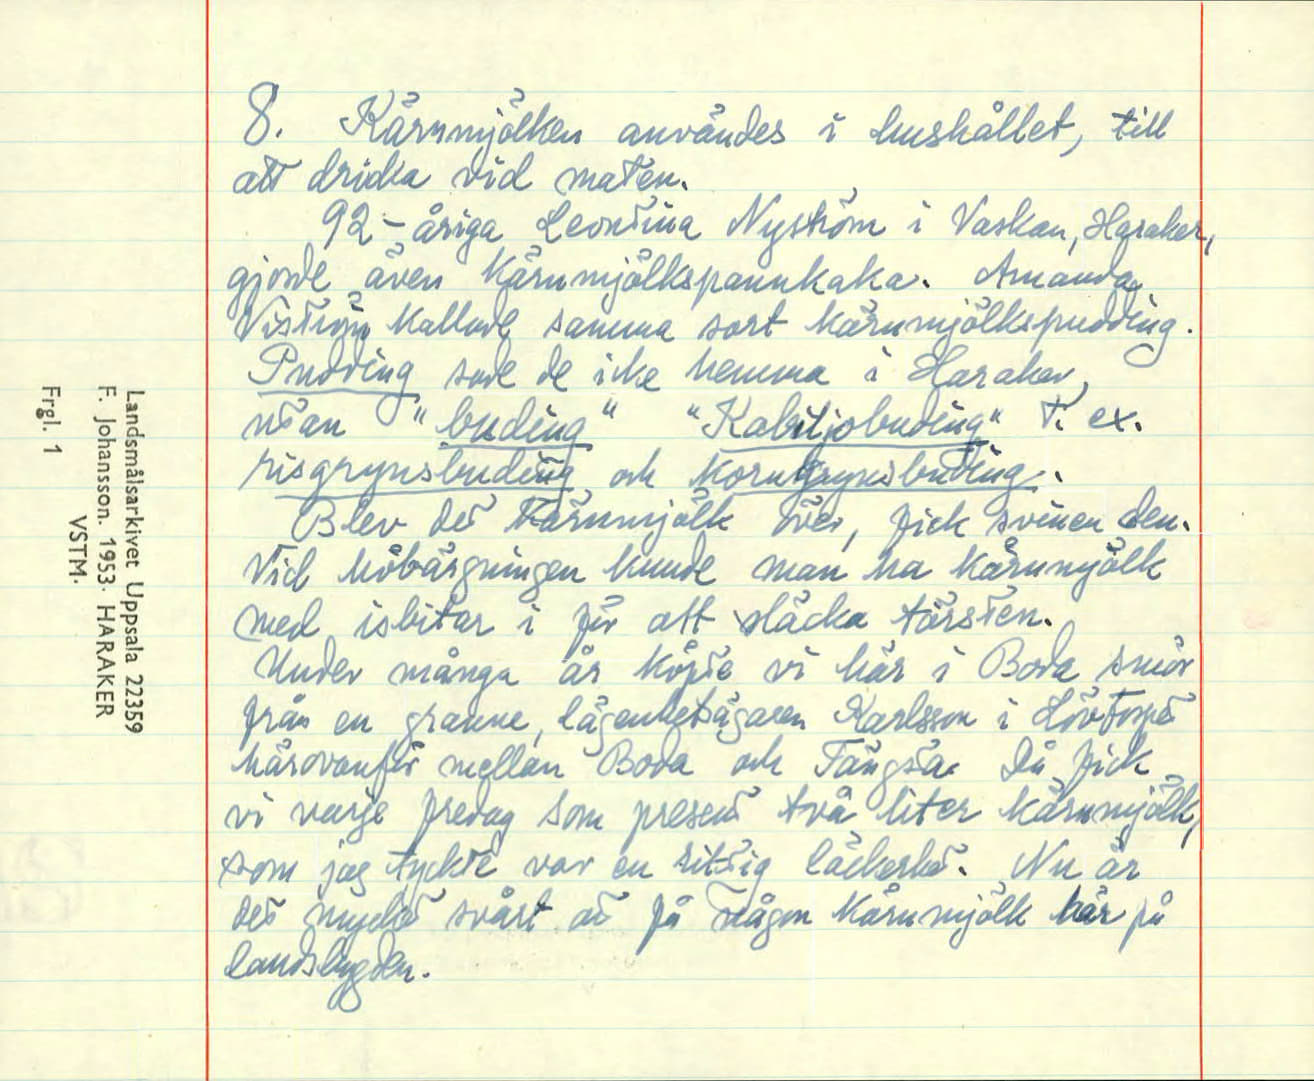 Landsmålsarkivet Uppsala 22359
F. Johansson. 1953. HARAKER
VSTM.
Frgl. 1
8. Kärnmjölken användes i hushållet, till
att dricka vid maten.
92-åriga Leontina Nyström i Vaskan, Haraker,
gjorde även kärnmjölkspannkaka. Amanda
Viström kallade samma sort kärnmjölkspudding.
Pudding sade de icke hemma i Haraker,
utan "buding" "Kabiljobuding" t. ex.
risgrynsbuding och korngrynsbuding.
Blev det kärnmjölk över, fick svinen den.
Vid höbärgningen kunde man ha kärnmjölk
med isbitar i för att släcka törsten.
Under många år köpte vi här i Boda smör
från en granne, lägenhetsägaren Karlsson i Lövtorpet
härovanför mellan Boda och Tängsta. Då fick
vi varje fredag som present två liter kärnmjölk,
som jag tyckte var en riktig läckerhet. Nu är
det mycket svårt att få någon kärnmjölk här på
landsbygden.